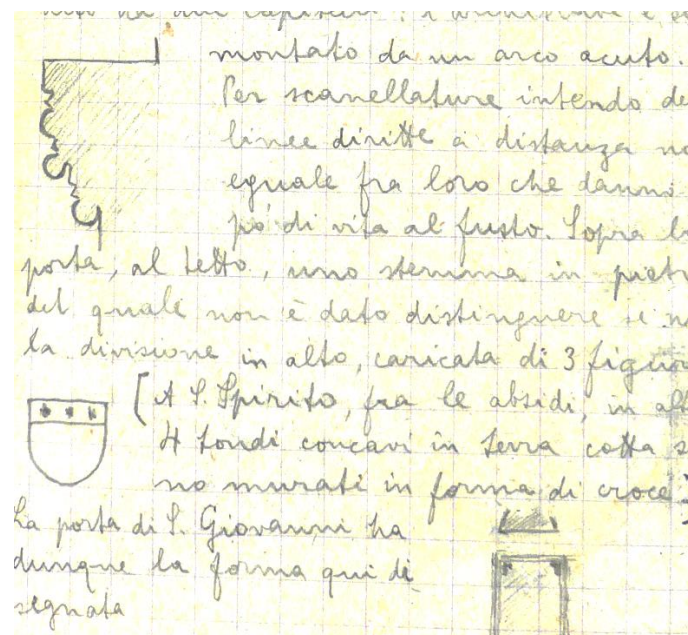 montato da un arco acuto.
Per scanellature intendo de
linee diritte a distanza no
eguale fra loro che danno
pò di vita al fusto. Sopra la
porta, al tetto, uno stemma in pietr
del quale non è dato distinguere se no
la divisione in alto, caricata di 3 figur
[A S. Spirito, fra le absidi, in alt
4 tondi concavi in terra cotta s
no murati in forma di croce.]
La porta di S. Giovanni ha
dunque la forma qui di
segnata